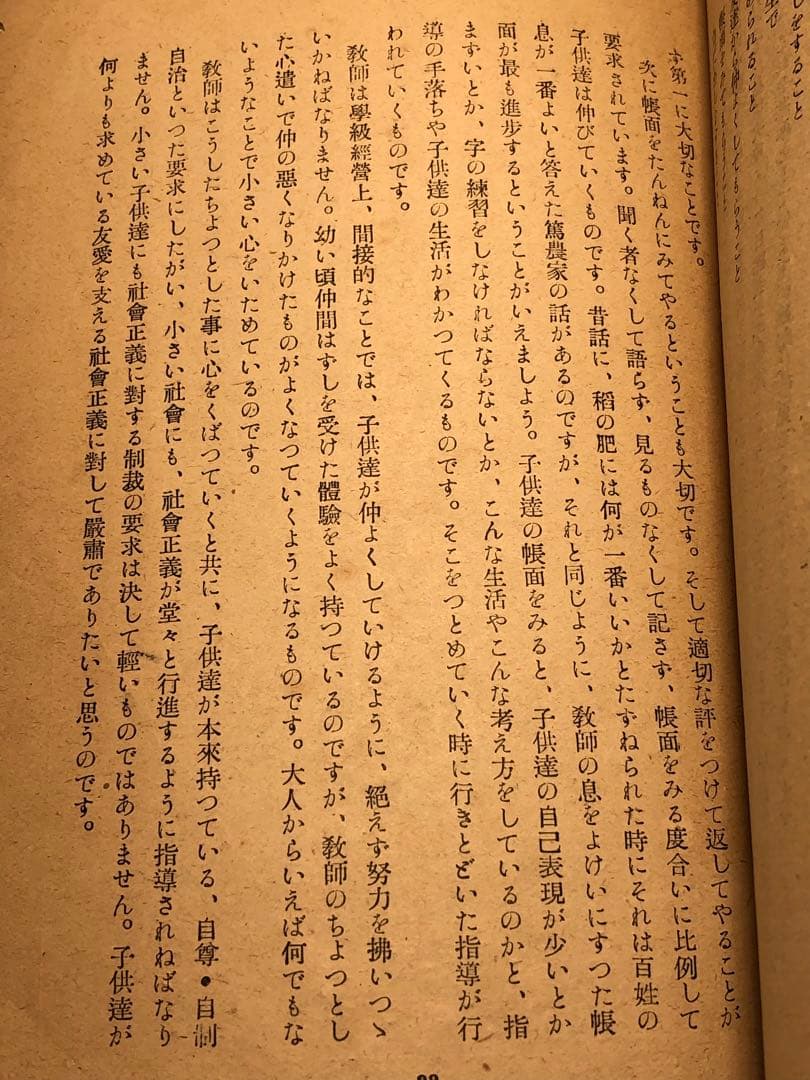 をすること
られること
ず第一に大切なことです。
次に帳面をたんねんにみてやるということも大切です。そして適切な評をつけて返してやることが
要求されています。聞く者なくして語らず、見るものなくして記さず、帳面をみる度合いに比例して
子供達は伸びていくものです。昔話に、稻の肥には何が一番いいかとたずねられた時にそれは百姓の
息が一番よいと答えた篤農家の話があるのですが、それと同じように、敎師の息をよけいにすつた帳
面が最も進步するということがいえましよう。子供達の帳面をみると、子供達の自己表現が少いとか
まずいとか、字の練習をしなければならないとか、こんな生活やこんな考え方をしているのかと、指
導の手落ちや子供達の生活がわかつてくるものです。そこをつとめていく時に行きとどいた指導が行
われていくものです。
敎師は學級經營上、間接的なことでは、子供達が仲よくしていけるように、絕えず努力を拂いつゝ
いかねばなりません。幼い頃仲間はずしを受けた體驗をよく持つているのですが、敎師のちよつとし
た心遣いで仲の惡くなりかけたものがよくなつていくようになるものです。大人からいえば何でもな
いようなことで小さい心をいためているのです。
敎師はこうしたちよつとした事に心をくばつていくと共に、子供達が本來持つている、自尊・自制
自治といつた要求にしたがい、小さい社會にも、社會正義が堂々と行進するように指導されねばなり
ません。小さい子供達にも社會正義に對する制裁の要求は決して輕いものではありません。子供達が
何よりも求めている友愛を支える社會正義に對して嚴肅でありたいと思うのです。